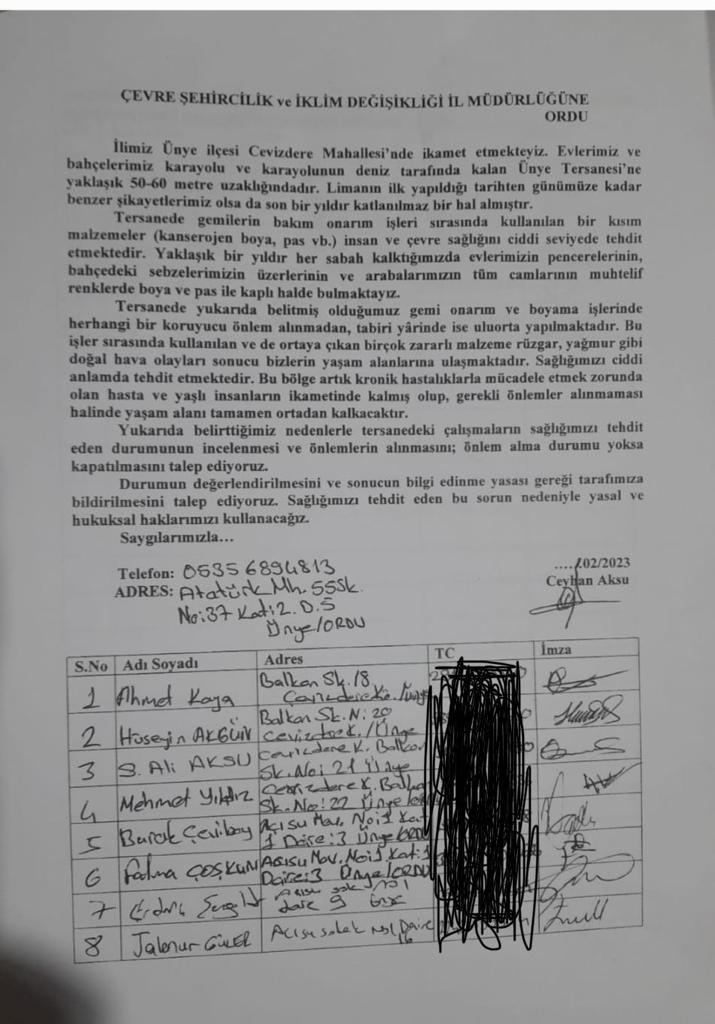 ÇEVRE ŞEHİRCİLİK ve İKLİM DEĞİŞİKLİĞİ İL MÜDÜRLÜĞÜNE
ORDU
İlimiz Ünye ilçesi Cevizdere Mahallesi'nde ikamet etmekteyiz. Evlerimiz ve
bahçelerimiz karayolu ve karayolunun deniz tarafında kalan Ünye Tersanesi'ne
yaklaşık 50-60 metre uzaklığındadır. Limanın ilk yapıldığı tarihten günümüze kadar
benzer şikayetlerimiz olsa da son bir yıldır katlanılmaz bir hal almıştır.
Tersanede gemilerin bakım onarım işleri sırasında kullanılan bir kısım
malzemeler (kanserojen boya, pas vb.) insan ve çevre sağlığını ciddi seviyede tehdit
etmektedir. Yaklaşık bir yıldır her sabah kalktığımızda evlerimizin pencerelerinin,
bahçedeki sebzelerimizin üzerlerinin ve arabalarımızın tüm camlarının muhtelif
renklerde boya ve pas ile kaplı halde bulmaktayız.
Tersanede yukarıda belitmiş olduğumuz gemi onarım ve boyama işlerinde
herhangi bir koruyucu önlem alınmadan, tabiri yârinde ise uluorta yapılmaktadır. Bu
işler sırasında kullanılan ve de ortaya çıkan birçok zararlı malzeme rüzgar, yağmur gibi
doğal hava olayları sonucu bizlerin yaşam alanlarına ulaşmaktadır. Sağlığımızı ciddi
anlamda tehdit etmektedir. Bu bölge artık kronik hastalıklarla mücadele etmek zorunda
olan hasta ve yaşlı insanların ikametinde kalmış olup, gerekli önlemler alınmaması
halinde yaşam alanı tamamen ortadan kalkacaktır.
Yukarıda belirttiğimiz nedenlerle tersanedeki çalışmaların sağlığımızı tehdit
eden durumunun incelenmesi ve önlemlerin alınmasını; önlem alma durumu yoksa
kapatılmasını talep ediyoruz.
Durumun değerlendirilmesini ve sonucun bilgi edinme yasası gereği tarafımıza
bildirilmesini talep ediyoruz. Sağlığımızı tehdit eden bu sorun nedeniyle yasal ve
hukuksal haklarımızı kullanacağız.
Saygılarımızla...
Telefon: 0535 6894813
..../02/2023
Ceyhan Aksu
ADRES: Atatürk Mh. 55 Sk.
No:37 Kat:2. D.5
Ünye/ORDU
S.No Adı Soyadı Adres TC İmza
1 Ahmet Kaya Balkan Sk. 18
Cevizdere K. /Ünye
2 Hüseyin AKGÜN Balkan Sk. N: 20
Cevizdere K. /Ünye
3 S. Ali AKSU Cevizdere K. Balkan
Sk. No: 21 Ünye
4 Mehmet Yıldız Cevizdere K. Balkan
Sk. No: 22 Ünye
5 Burak Acısu Mav. No:1 Kat
1 Daire:3 Ünye/ORDU
6 Fatma ÇOŞKUN Acısu Mav. No:1 Kat:1
Daire:3 Ünye/ORDU
7 Acısu sok no1
daire 9 Ünye
8 GÜLER Acısu sokak no1 Daire